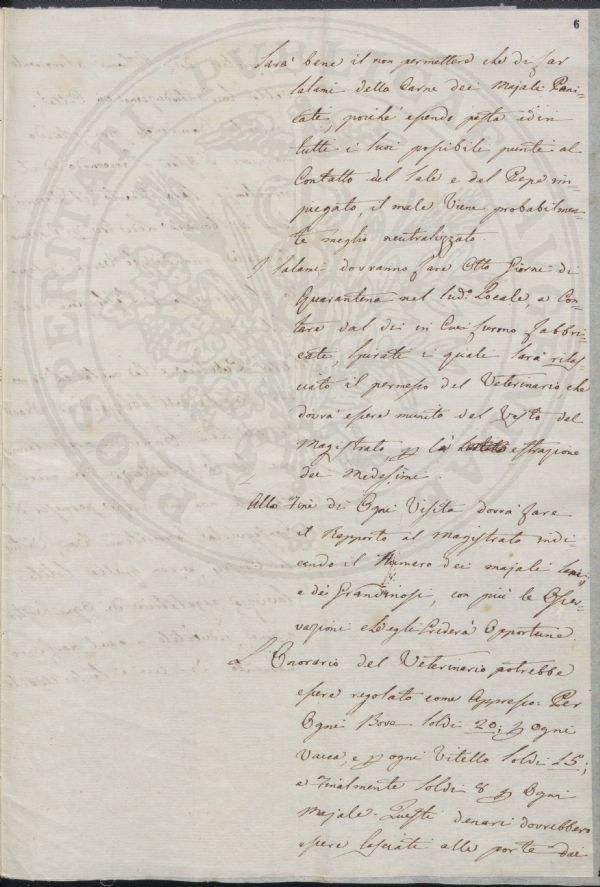 6
Sara' bene il non permettere che di far
salami della Carne dei Majali Pani-
cati, poiché essendo pesta ed in
tutti i suoi possibile punti al
Contatto del Sale e del Pepe im-
piegato, il male Viene probabilmen-
te meglio neutralizzato.
I Salami dovranno fare Otto Giorni di
Quarantena nel sud.o Locale, a Con-
tare dal dei in Cui furono fabbri-
cati, spirati i quali Sarà rilas-
ciato il permesso del Veterinario che
dovrà essere munito del Visto del
Magistrato p la estrazione
dei Medesimi.
Alla Fine di Ogni Visita dovrà fare
il Rapporto al Magistrato indi-
cando il Numero dei majali
e dei Grandinosi, con più le Osser-
vazioni Ch'egli Crederà Opportune.
L'Onorario del Veterinario potrebbe
essere regolato come Appresso. Per
Ogni Bove Soldi 20; p ogni
Vacca, e p ogni Vitello Soldi 15;
e Finalmente Soldi 8 p Ogni
Majale. Questi denari dovrebbero
essere lasciati alle porte dai
PROSPERITATI PUBLICAE